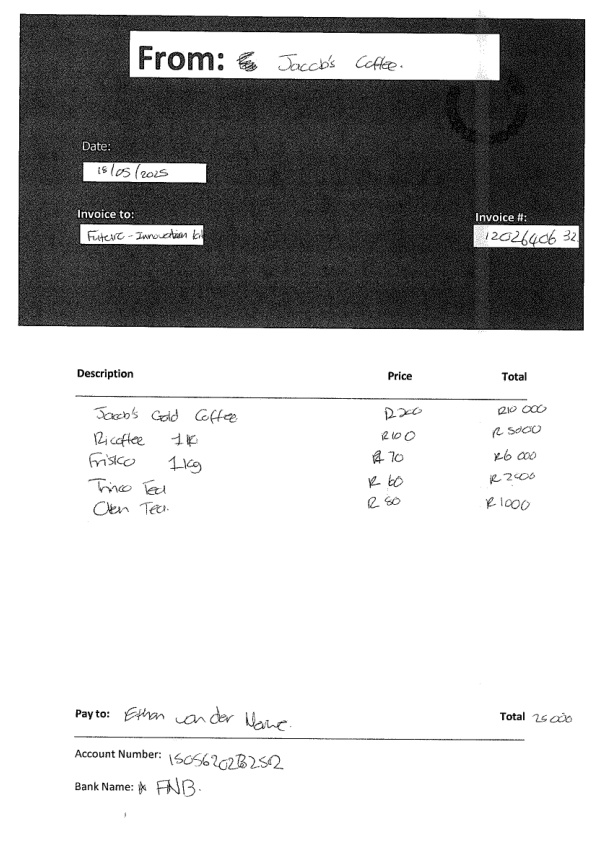 From: Jacob's Coffee.
Date:
18/05/2025
Invoice to: Invoice #:
Future - Innovation 12026406 32
Description Price Total
Jacob's Gold Coffee R200 R10 000
Ricoffee 1K R100 R5000
Frisko 1kg R70 R6 000
Trinco Tea R60
Tea. R80 R1000
Pay to: Ethan van der Total 25 000
Account Number:
Bank Name: FNB.